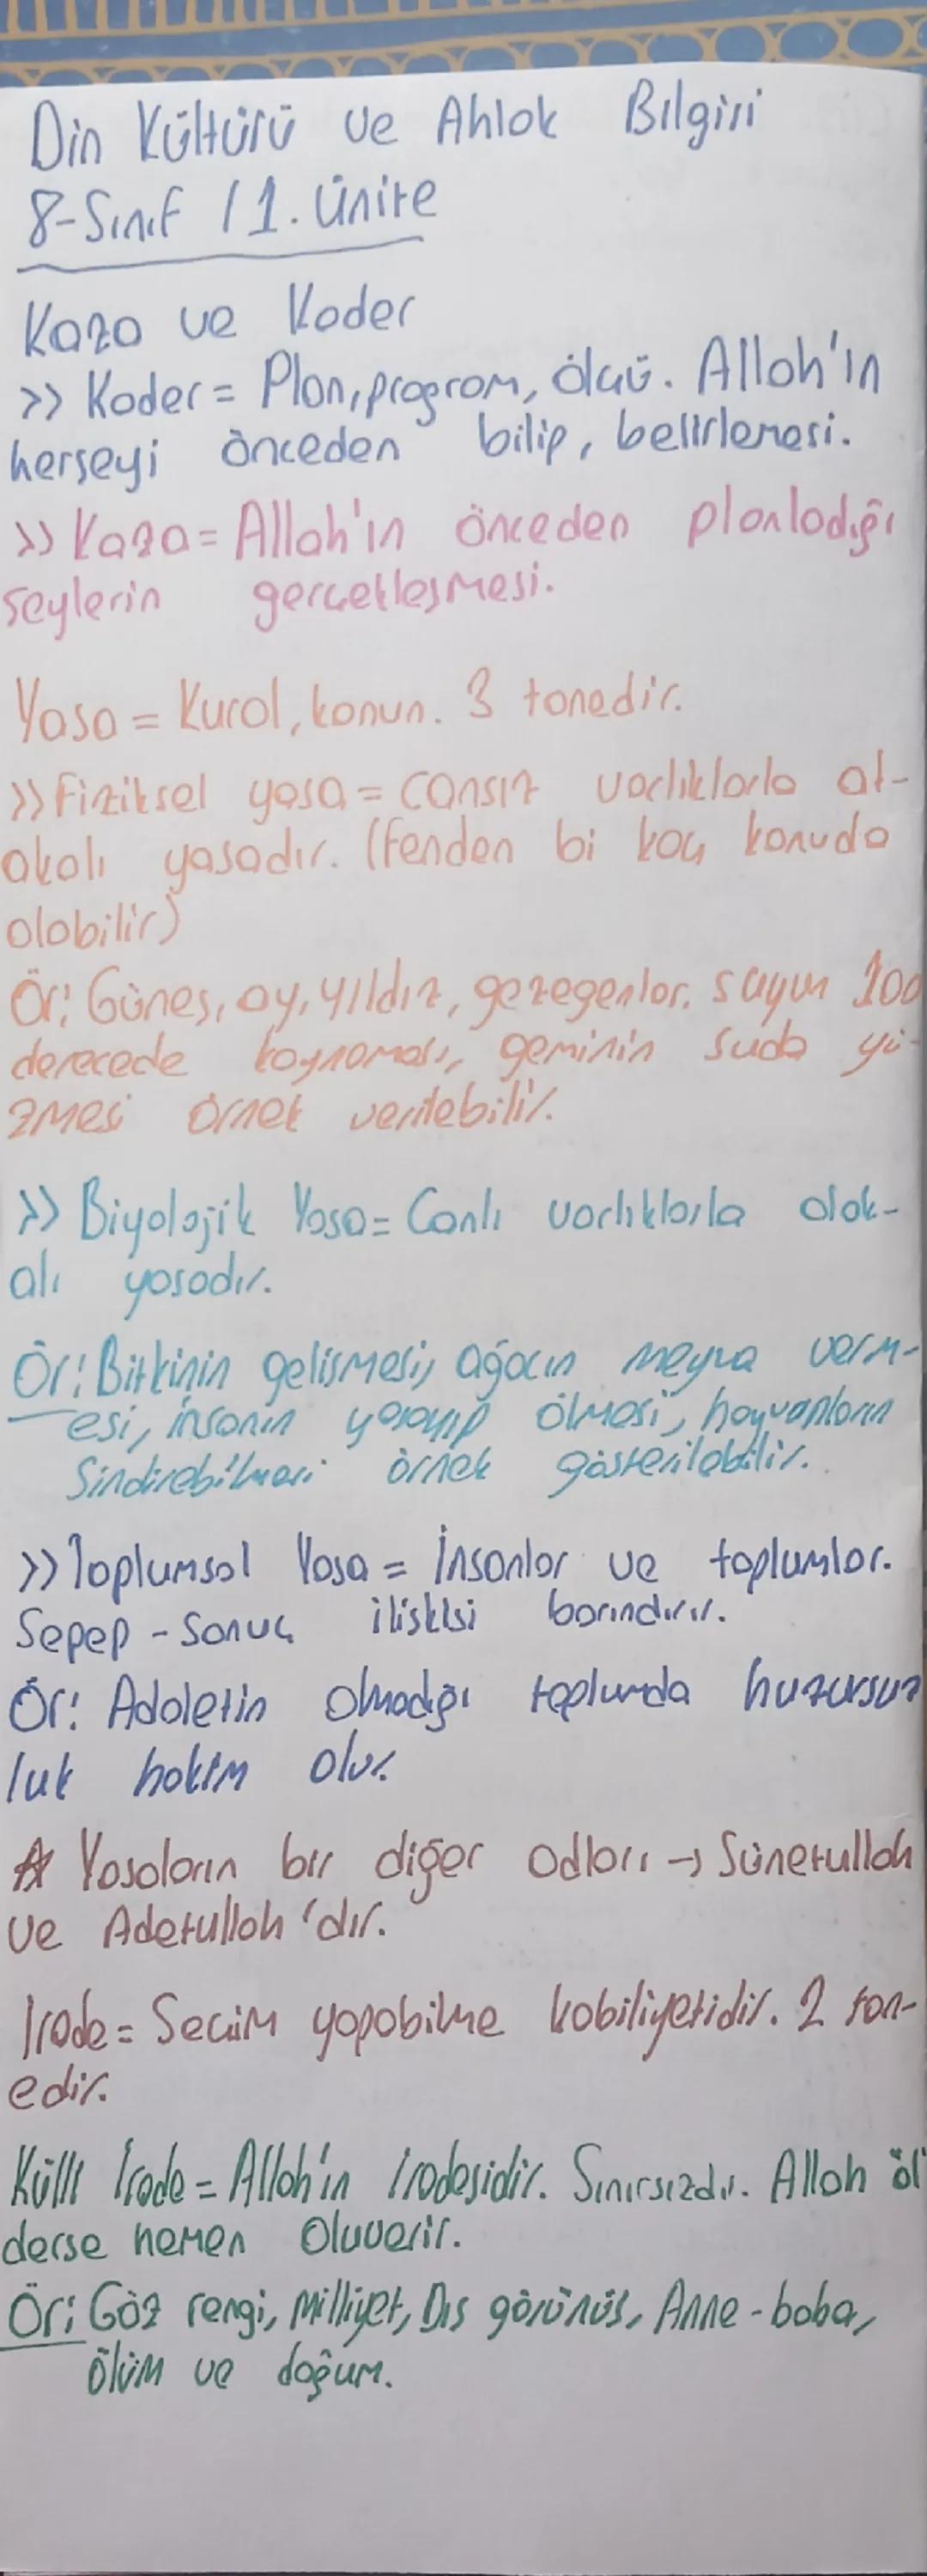 Din Kültürü ve Ahlak Bilgisi
8-Sınıf / 1. Ünite
Kaza ve Kader
>> Kader = Plan, program, ölçü. Allah'ın
herseyi önceden bilip, belirlemesi.
>> Kaza = Allah'ın önceden planladığı
seylerin gerçekleşmesi.
Yasa = Kural, kanun. 3 tanedir.
>> Fiziksel yasa = cansız varlıklarla al-
akalı yasadır. (Fenden bi kaç konuda
olabilir)
Ör: Güneş, ay, yıldız, gezegenler. suyun 100
derecede kaynaması, geminin suda yü-
zmesi örnek verilebilir.
>> Biyolojik Yasa = Canlı varlıklarla alak-
alı yasadır.
Ör: Bitkinin gelişmesi, ağacın meyva verm-
esi, insanın yaşayıp ölmesi, hayvanların
Sindirebilmesi örnek gösterilebilir.
>> Toplumsal Yasa = İnsanlar ve toplumlar.
Sepep - sonuç ilişkisi barındırır.
Ör: Adaletin olmadığı toplumda huzursuz
luk hakim olur.
☆ Yasaların bir diğer adları → Sünetullah
ve Adetullah 'dır.
Irade = Secim yapabilme kabiliyetidir. 2 tan-
edir.
Külli İrade = Allah'ın iradesidir. Sınırsızdır. Allah öl
derse hemen oluverir.
Ör: Göz rengi, Milliyet, Dış görünüş, Anne - baba,
ölüm ve doğum.